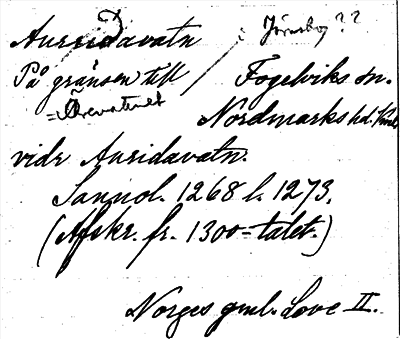 Aursidavatn
Järnskog ??
På gränsen till
Fogelviks sn.
=Örevattnet
Nordmarks hd.
vidr Aursidavatn.
Sannol. 1268 l. 1273.
(Afskr. fr. 1300=talet.)
Norges gml. Love II.